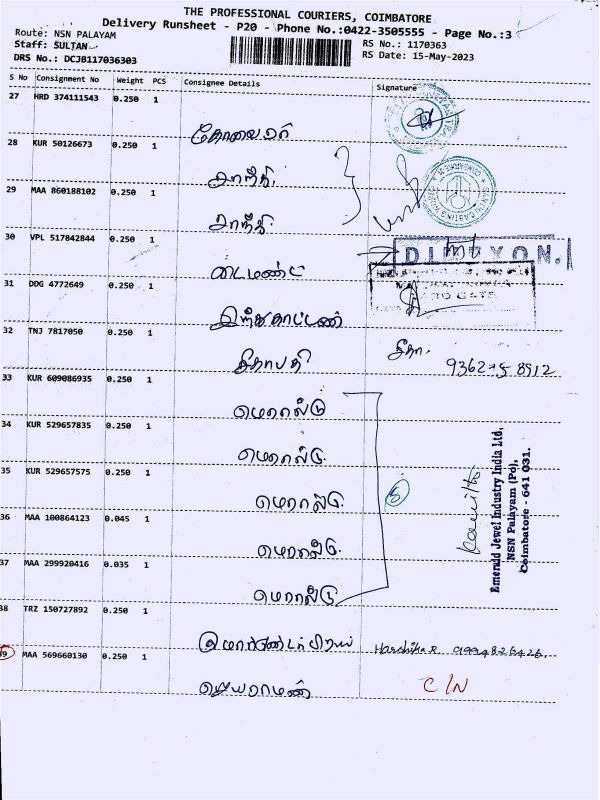 THE PROFESSIONAL COURIERS, COIMBATORE
Delivery Runsheet - P20 - Phone No.:0422-3505555 - Page No.:3
Route: NSN PALAYAM
Staff: SULTAN
RS No.: 1170363
DRS No.: DCJB117036303
RS Date: 15-May-2023
S No Consignment No Weight PCS Consignee Details Signature
27 HRD 374111543 0.250 1
28 KUR 50126673 0.250 1
சாந்தி.
29 MAA 860188102 0.250 1
சாந்தி.
30 VPL 517842844 0.250 1
டைமண்ட்
31 DDG 4772649 0.250 1
இந்துகாட்டன்
32 TNJ 7817050 0.250 1
சீதாபதி சீதா.
33 KUR 609086935 0.250 1
எமரால்டு
34 KUR 529657835 0.250 1
எமரால்டு.
35 KUR 529657575 0.250 1
எமரால்டு.
36 MAA 100864123 0.045 1
எமரால்டு.
37 MAA 299920416 0.035 1
எமரால்டு
5
Emerald Jewel Industry India Ltd,
NSN Palayam (Po),
Coimbatore - 641 031.
38 TRZ 150727892 0.250 1
Harshika R. 9994826426.
39 MAA 569660130 0.250 1
ஜெயராமன் C/N